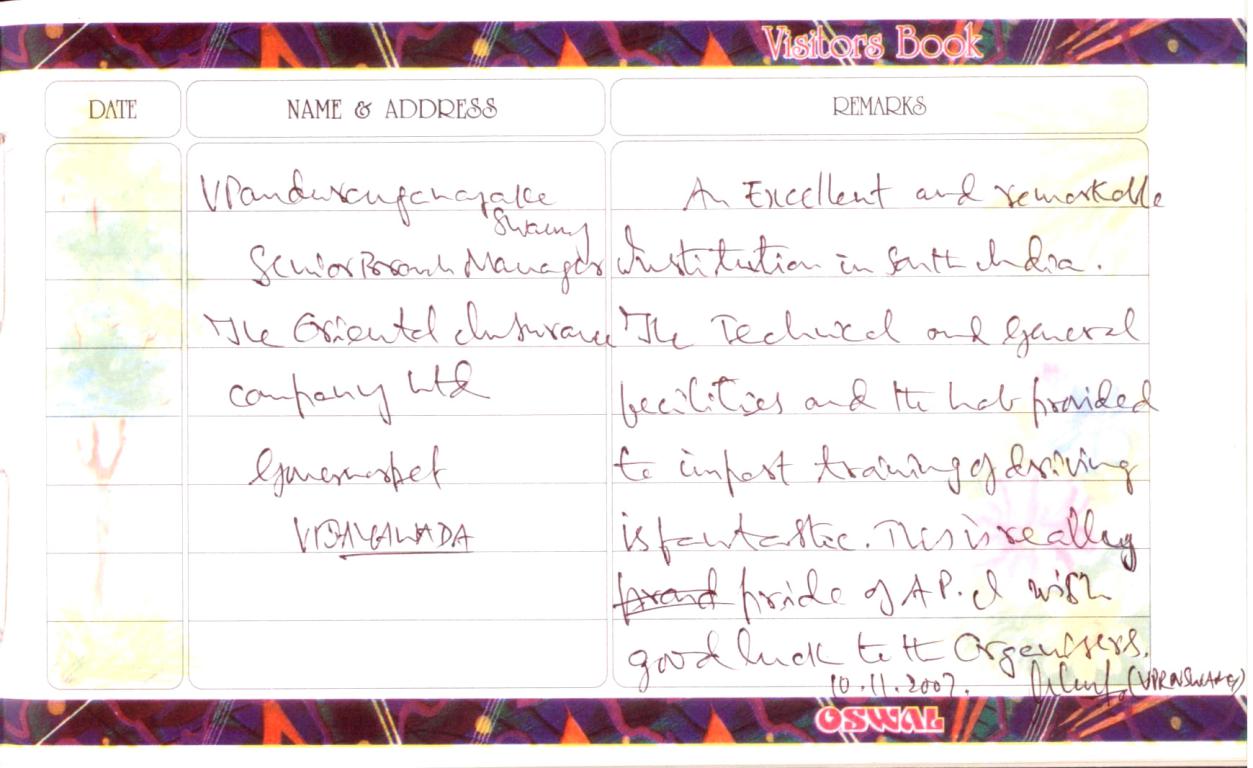 Visitors Book
DATE
NAME & ADDRESS
REMARKS
Swamy
Senior Branch Manager
The Oriental Insurance
company Ltd
Governorpet
VIJAYAWADA
An Excellent and remarkable
Institution in South India.
The Technical and general
facilities and the hub provided
to impart training of driving
is fantastic. This is really
pride of A P. I wish
good luck to the Organisers.
10.11.2007.
OSWAL